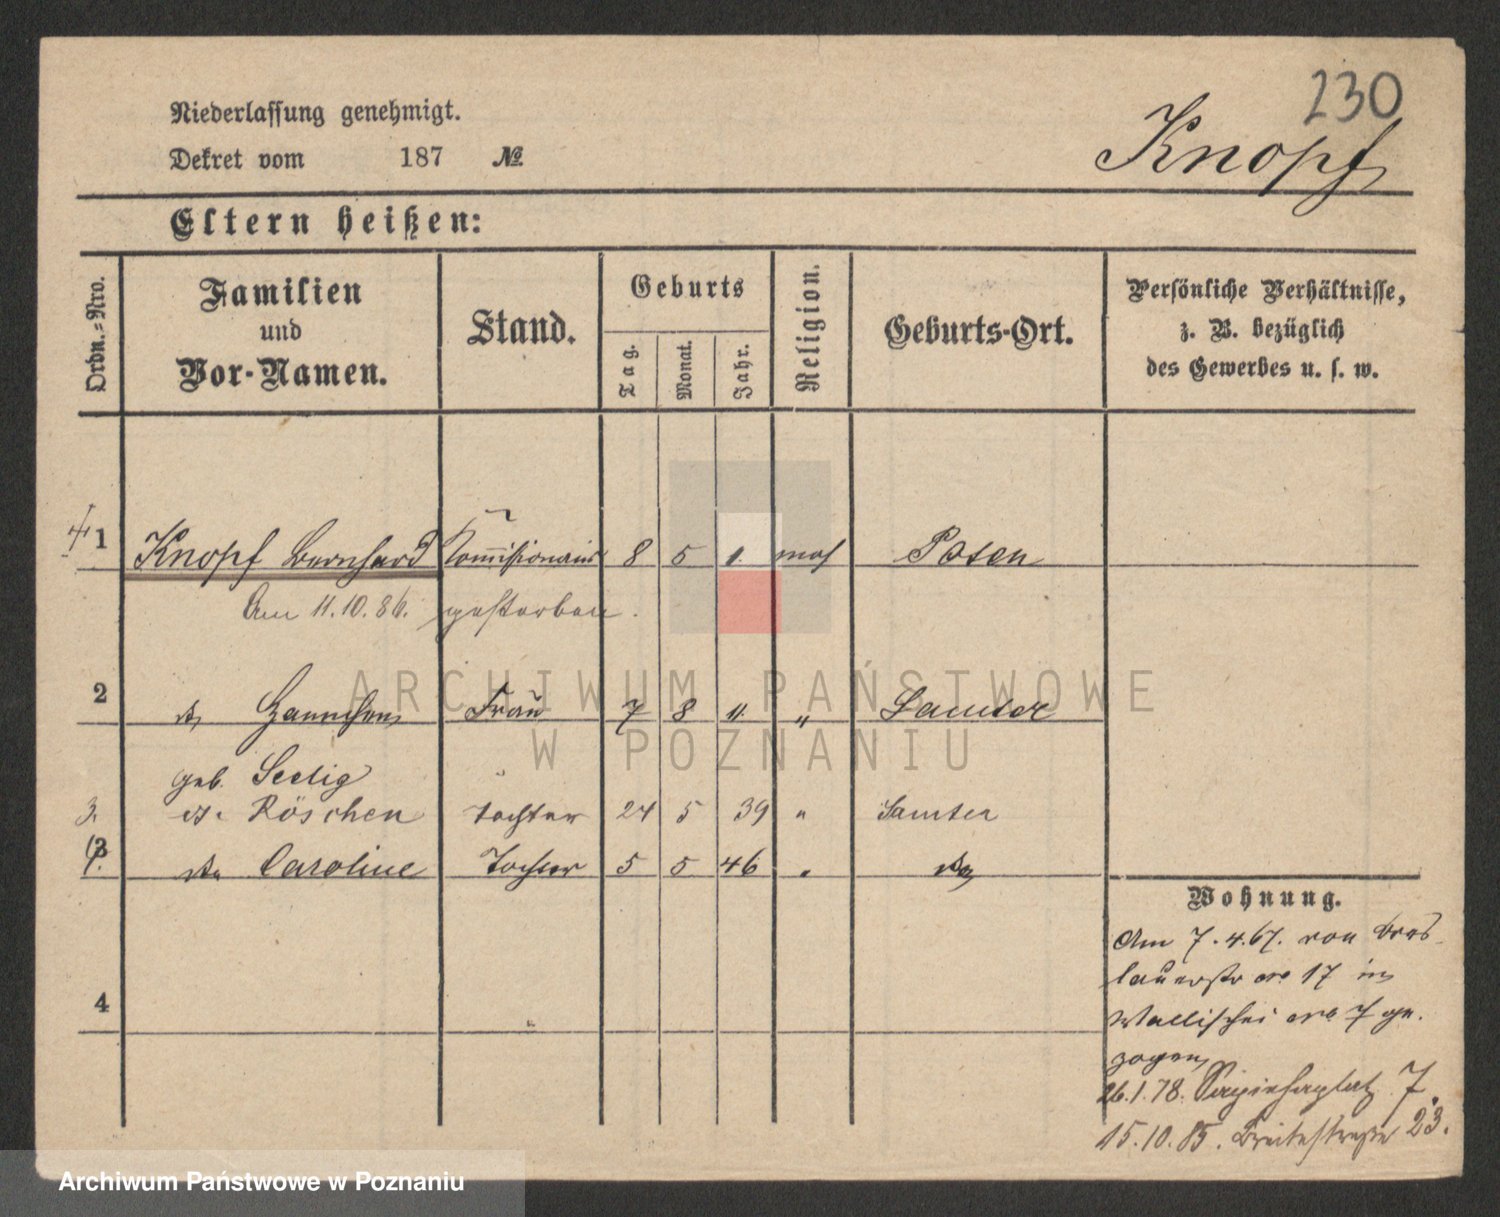 230
Niederlassung genehmigt.
Knopf
Dekret vom 187 №
Eltern heißen:
Ordn.-Nro.
Familien und Vor-Namen.
Stand.
Geburts
Tag.
Monat.
Jahr.
Religion.
Geburts-Ort.
Persönliche Verhältnisse,
z. B. bezüglich
des Gewerbes u. s. w.
1 Knopf Bernhard Kommissionair 8 5 1. mos Posen
Am 11.10.86. gestorben.
2 Hannchen Frau 7 8 11. " Samter
geb. Seelig
3. Röschen Tochter 24 5 39 " Samter
Caroline Tochter 5 5 46
4
Wohnung.
Am 7.4.67. von Bres-
lauerstr no 17 in
Wallischei no 7 ge-
zogen
26.1.78. Sapiehaplatz 7.
15.10.85. Breitestraße 23.
ARCHIWUM PAŃSTWOWE
W POZNANIU
Archiwum Państwowe w Poznaniu